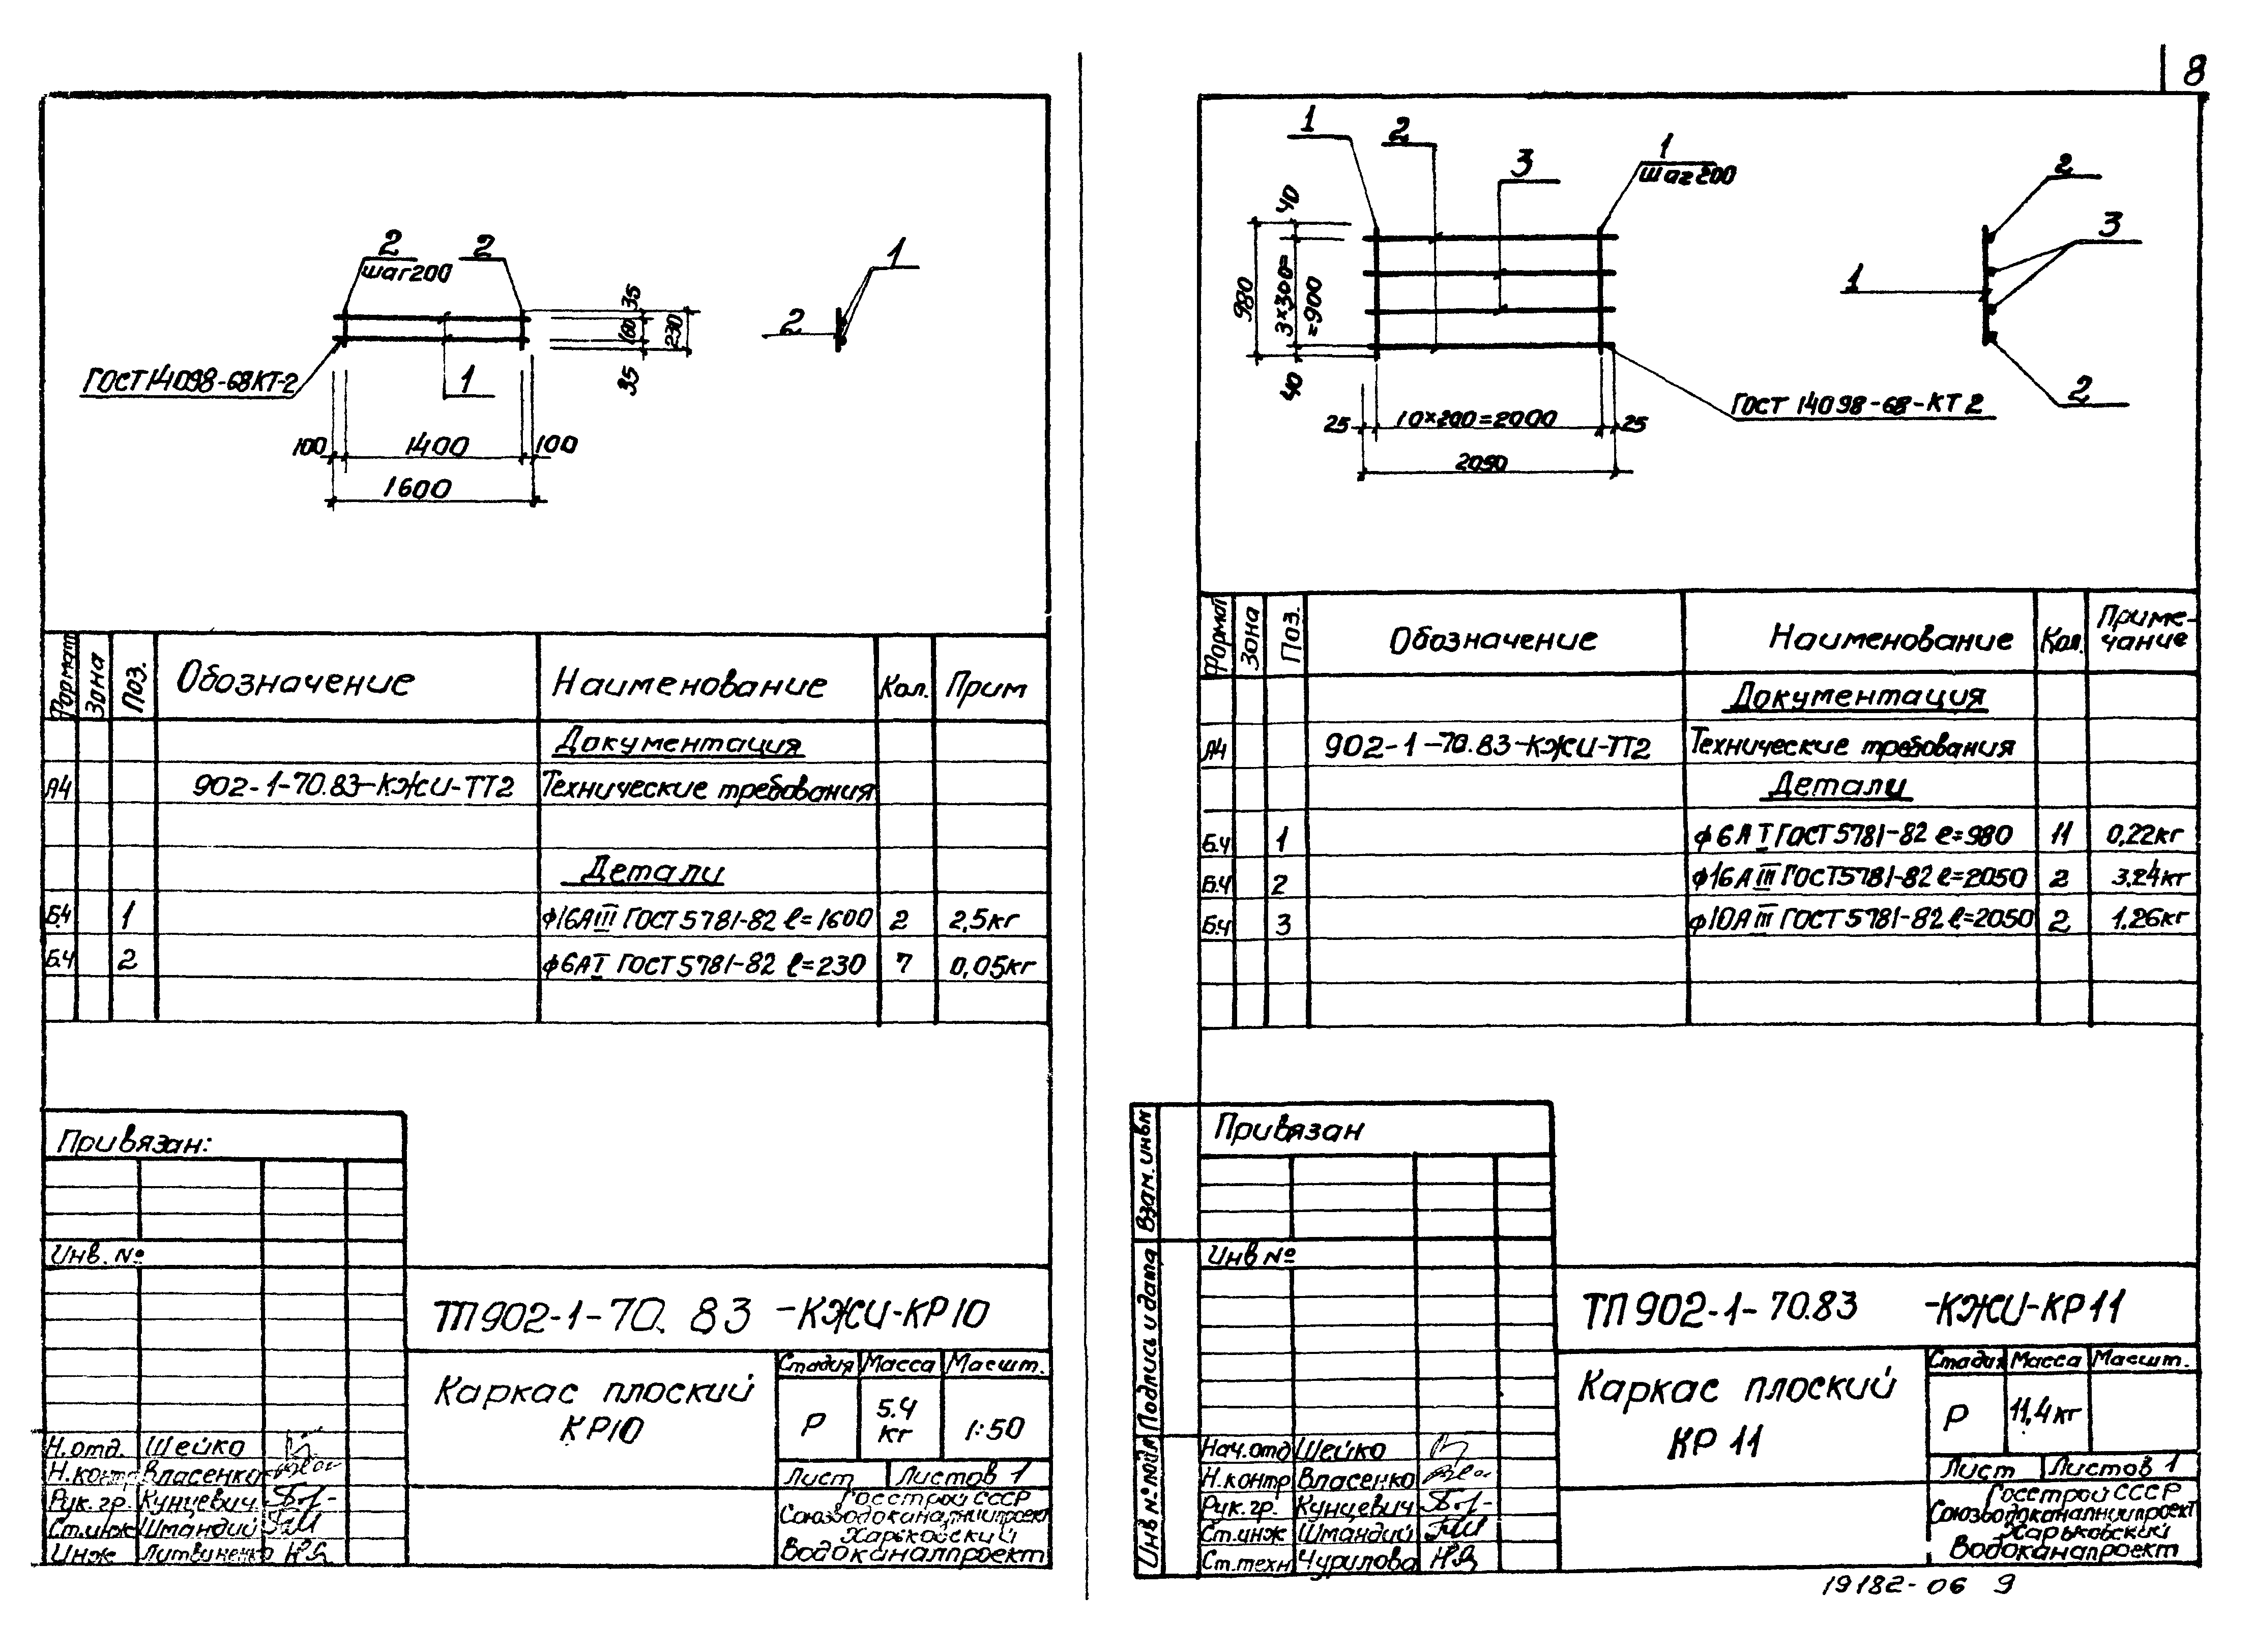 8
2
шаг200
2
1
2
35
160
230
35
ГОСТ14098-68КТ-2
1
100
1400
100
1600
Формат
Зона
Поз.
Обозначение
Наименование
Кол.
Прим
Документация
А4
902-1-70.83-КЖИ-ТТ2
Технические требования
Детали
Б.4
1
ф16АIII ГОСТ5781-82 ℓ=1600
2
2,5кг
Б.ч
2
ф6АI ГОСТ5781-82 ℓ=230
7
0,05кг
Привязан:
Инв. №
ТП902-1-70.83-КЖИ-КР10
Каркас плоский
КР10
Стадия
Масса
Масшт.
Р
5.4
кг
1:50
Лист
Листов 1
Н.отд.
Шейко
Н.контр
Власенко
Рук.гр.
Кунцевич
Ст.инж
Шмандий
Инж
Литвиненко
Госстрой СССР
Союзводоканалниипроект
Харьковский
Водоканалпроект
1
2
3
1
шаг200
40
980
3×300=
=900
40
25
10×200=2000
25
2050
ГОСТ 14098-68-КТ2
2
3
1
2
Формат
Зона
Поз.
Обозначение
Наименование
Кол.
Приме-
чание
Документация
А4
902-1-70.83-КЖИ-ТТ2
Технические требования
Детали
Б.ч
1
ф6АI ГОСТ5781-82 ℓ=980
11
0,22кг
Б.ч
2
ф16АIII ГОСТ5781-82 ℓ=2050
2
3.24кг
Б.ч
3
ф10АIII ГОСТ5781-82 ℓ=2050
2
1.26кг
Взам. инв№
Подпись и дата
Инв № подл
Привязан
Инв №
ТП902-1-70.83 -КЖИ-КР11
Каркас плоский
КР 11
Стадия
Масса
Масшт.
Р
11,4кг
Лист
Листов 1
Нач.отд
Шейко
Н.контр
Власенко
Рук.гр.
Кунцевич
Ст.инж
Шмандий
Ст.техн
Чурилова
Госстрой СССР
Союзводоканалниипроект
Харьковский
Водоканалпроект
19182-06 9